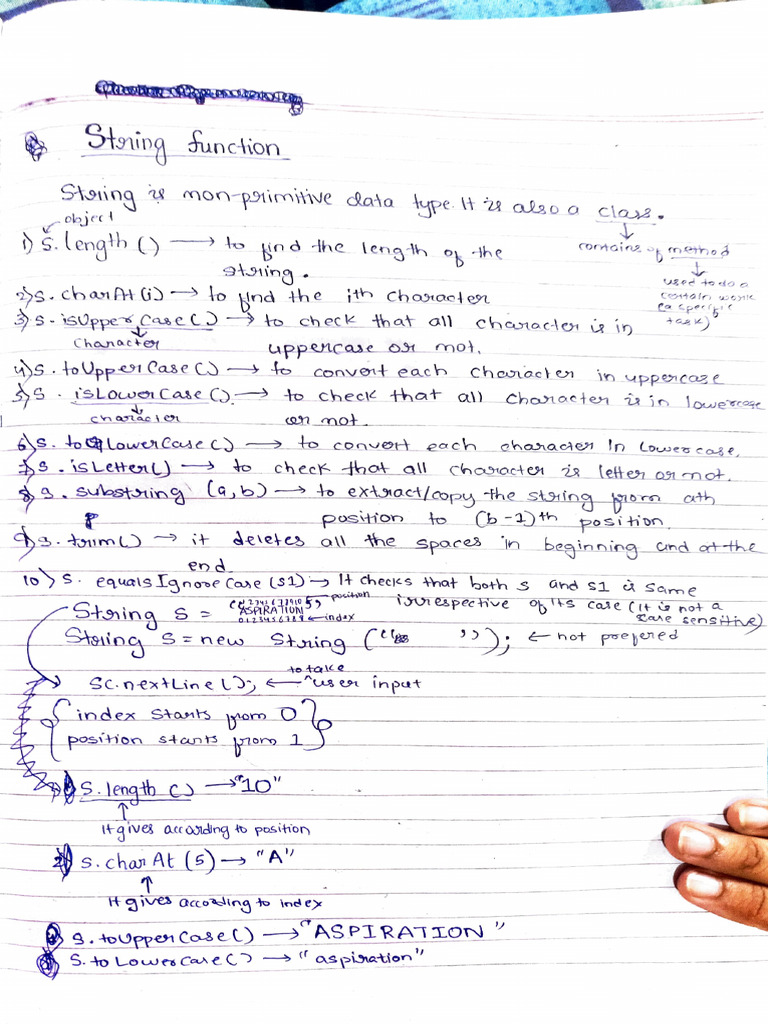 String function
String is non-primitive data type. It is also a class.
object
contains of method
used to do a
contain work
(a specific
task)
1) s.length() → to find the length of the
string.
2) s.charAt(i) → to find the ith character
3) s.isUpperCase() → to check that all character is in
character
uppercase or not.
4) s.toUpperCase() → to convert each character in uppercase
5) s. isLowerCase() → to check that all character is in lowercase
character
or not.
6) s.toLowerCase() → to convert each character in lowercase.
7) s.isLetter() → to check that all character is letter or not.
8) s.substring (a,b) → to extract/copy the string from ath
position to (b-1)th position.
9) s.trim() → it deletes all the spaces in beginning and at the
end
10) s. equalsIgnoreCase(s1) → It checks that both s and s1 is same
irrespective of its case (It is not a
case sensitive)
12345678910 ← position
String s = "ASPIRATION";
0123456789 ← index
String s = new String (" "); ← not prefered
to take
sc.nextLine(); ← user input
{index starts from 0}
{position starts from 1}
s.length () → "10"
It gives according to position
2) s.charAt (5) → "A"
It gives according to index
s.toUpperCase() → "ASPIRATION"
s.toLowerCase() → "aspiration"